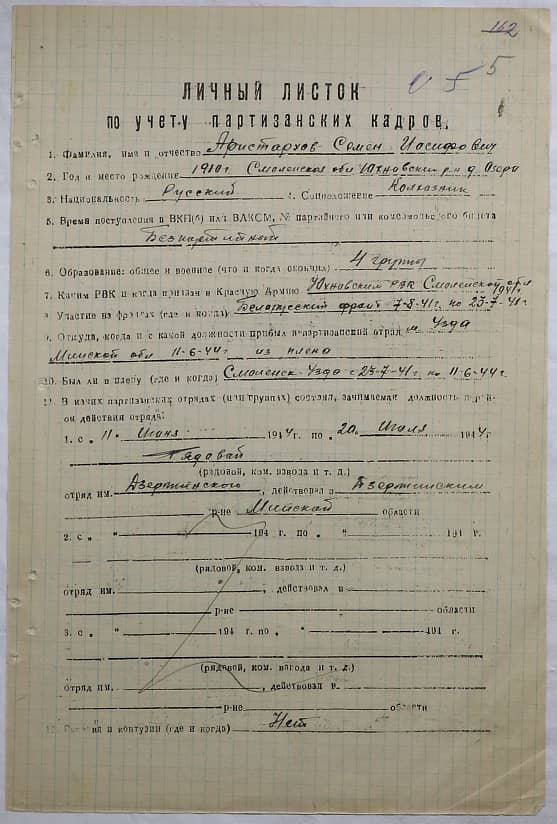 162
5 5
ЛИЧНЫЙ ЛИСТОК
по учету партизанских кадров.
1. Фамилия, имя и отчество Аристархов Семен Иосифович
2. Год и место рождение 1910 г Смоленская обл Юхновский р-н д. Озера
3. Национальность Русский 4. Соцположение Колхазник
5. Время поступления в ВКП(б) или ВЛКСМ, № партийного или комсомольского билета
Безпартийной
6. Образование: общее и военное (что и когда окончил) 4 группы
7. Каким РВК и когда призван в Красную Армию Юхновским РВК Смоленской обл
1941г
8. Участие на фронтах (где и когда) Белорусский фронт 7-8-41г. по 23-7-41г
9. Откуда, когда и с какой должности прибыл в партизанский отряд м. Узда
Минской обл 11-6-44г из плена
10. Был ли в плену (где и когда) Смоленск-Узда с 23-7-41г по 11-6-44г.
11. В каких партизанских отрядах (или группах) состоял, занимаемая должность
он действия отряда:
1. с „ 11 „ Июня 1944 г. по „ 20 „ Июля 1944 г
Рядавай
(рядовой, ком. взвода и т. д.)
отряд им. Дзержинского, действовал в Дзержинским
р-не Минской области
2. с „ “ 194 г. по „ “ 194 г.
(рядовой, ком. взвода и т. д.)
отряд им. , действовал в
р-не области
3. с „ “ 194 г. по „ “ 194 г.
(рядовой, ком. взвода и т. д.)
отряд им. , действовал в
р-не области
и контузии (где и когда) Нет